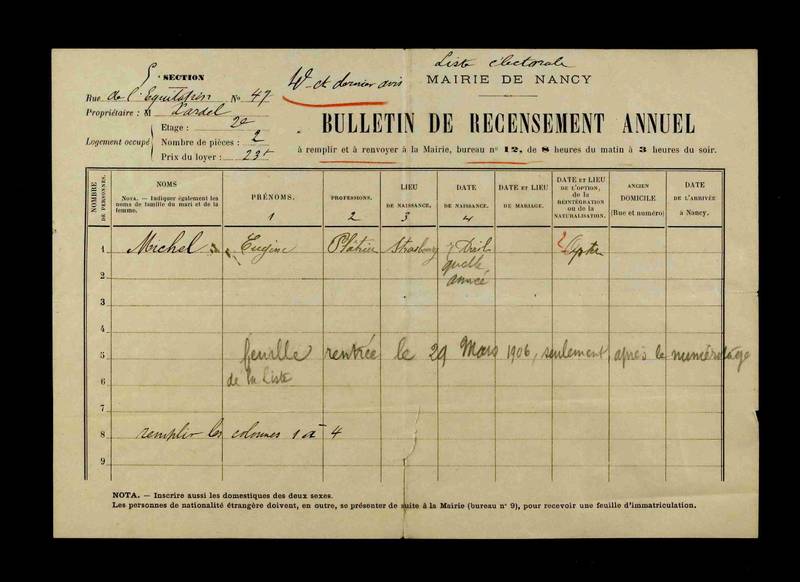 5e SECTION
Rue de l'Equitation No 47
Propriétaire : M Lardel
Logement occupé
Etage : 2e
Nombre de pièces : 2
Prix du loyer : 23f
et dernier avis
Liste électorale
MAIRIE DE NANCY
BULLETIN DE RECENSEMENT ANNUEL
à remplir et à renvoyer à la Mairie, bureau no 12, de 8 heures du matin à 3 heures du soir.
NOMBRE DE PERSONNES.
NOMS
NOTA. — Indiquer également les noms de famille du mari et de la femme.
PRÉNOMS.
1
PROFESSIONS.
2
LIEU DE NAISSANCE.
3
DATE DE NAISSANCE.
4
DATE ET LIEU DE MARIAGE.
DATE ET LIEU DE L'OPTION, de la RÉINTÉGRATION ou de la NATURALISATION.
ANCIEN DOMICILE (Rue et numéro)
DATE DE L'ARRIVÉE à Nancy.
1 Michel Eugène Plâtrier Strasbourg 7 Avril
quelle
2 année
3
4
5 feuille rentrée le 29 Mars 1906, seulement après le numérotage
6 de la Liste
7
8 remplir les colonnes 1 à 4
9
NOTA. — Inscrire aussi les domestiques des deux sexes.
Les personnes de nationalité étrangère doivent, en outre, se présenter de suite à la Mairie (bureau no 9), pour recevoir une feuille d'immatriculation.